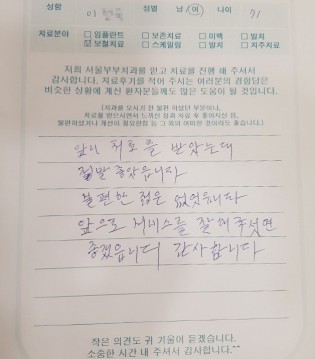 성함 이 성별 남 여 나이 71
치료분야 □ 임플란트 □ 보존치료 □ 미백 □ 발치
☑ 보철치료 □ 스케일링 □ 발치 □ 치주치료
저희 서울부부치과를 믿고 치료를 진행 해 주셔서
감사합니다. 치료후기를 적어 주시는 여러분의 경험담은
비슷한 상황에 계신 환자분들께도 많은 도움이 될 것입니다.
(치과를 오시기 전 불편 하셨던 부분이나,
치료를 받으시면서 느끼신 점과 치료 후 좋아지신 점,
불편하셨거나 개선이 필요한점 등 그 외의 어떠한 것이라도 좋습니다.)
앞니 치료를 받았는데
정말 좋았습니다
불편한 점은 없었습니다
앞으로 서비스를 잘해주셨면
좋겠습니다 감사합니다
작은 의견도 귀 기울여 듣겠습니다.
소중한 시간 내 주셔서 감사합니다.^^